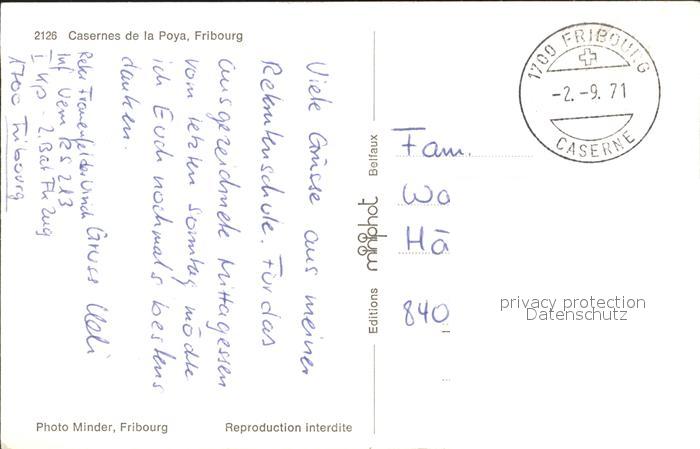 2126 Casernes de la Poya, Fribourg
Viele Grüsse aus meiner
Rekrutenschule. Für das
ausgezeichnete Mittagessen
vom letzten Sonntag möchte
ich Euch nochmals bestens
danken.
Gruss Ueli
Rekr Frauenfelder Ulrich
Inf Uem RS 213
I Kp - 2. Bat Fk Zug
1700 Fribourg
Photo Minder, Fribourg
Reproduction interdite
Editions Belfaux
1700 FRIBOURG
-2.-9.71
CASERNE
Fam.
Wo
Hä
840
privacy protection
Datenschutz